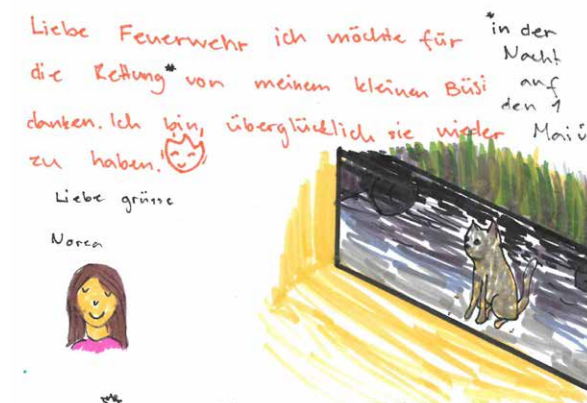 Liebe Feuerwehr ich möchte für
die Rettung* von meinem kleinen Büsi
danken. Ich bin, überglücklich sie wieder
zu haben.
*in der
Nacht
auf
den 1
Mai
Liebe grüsse
Norea